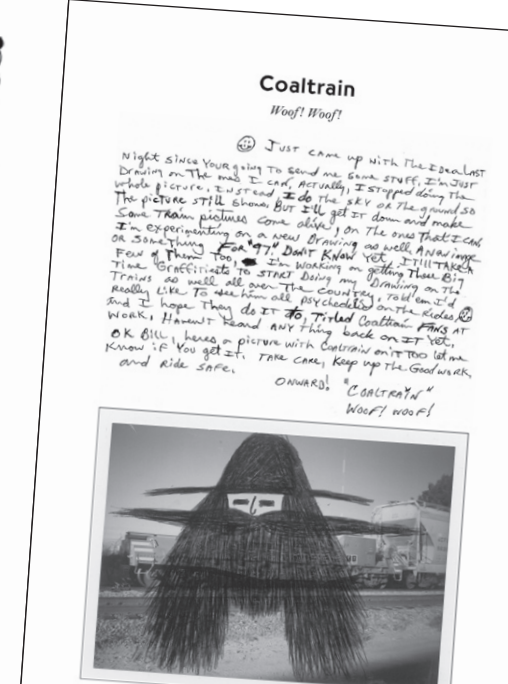 Coaltrain
Woof! Woof!
JUST CAME UP WITH THE IDEA LAST
Night SINCE YOUR going To send me some stuff, I'm JUST
DRAWING on The ones I CAN, ACTUALLY, I stopped doing The
whole picture, INSTEAD I do The SKY or The ground so
The picture still shows, BUT I'll get IT down and make
Some TRAIN pictures come alive, on The ones That I CAN
I'm experimenting on a new Drawing as well, A New image
OR SomeThing FOR "97". DON'T KNOW YeT, IT'll TAKE A
Few of Them Too, I'm WORKING on getting Those Big
Time GRAFFITIESTS TO START Doing my DRAWING on The
TRAINS as well all over The COUNTRY, Told 'em I'd
Really Like To see him all PSYchedelic on The Rides,
And I hope They do IT To, Titled Coaltrain FANS AT
WORK, HAVEN'T heard ANY Thing back on IT YeT.
OK Bill, heres a picture with COALTRAIN on it TOO let me
Know if You get IT. TAKE CARE, Keep up The Good work,
and Ride SAFe.
ONWARD! "COALTRAIN"
WOOF! WOOF!